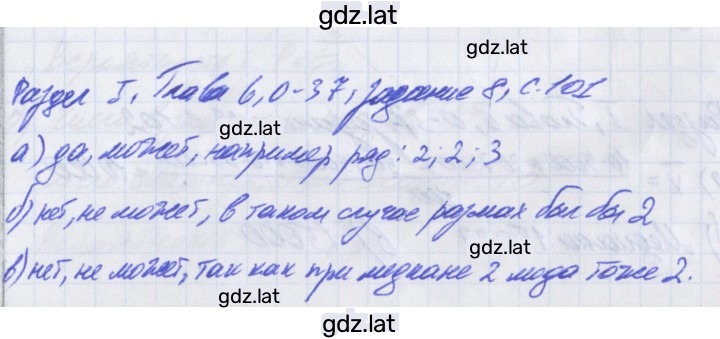 gdz.lat
gdz.lat
Раздел I, Глава 6, О-37, задание 8, с. 101
gdz.lat
а) да, может, например ряд: 2; 2; 3
gdz.lat
б) нет, не может, в таком случае размах был бы 2
gdz.lat
в) нет, не может, так как при медиане 2 мода тоже 2.
gdz.lat
gdz.lat